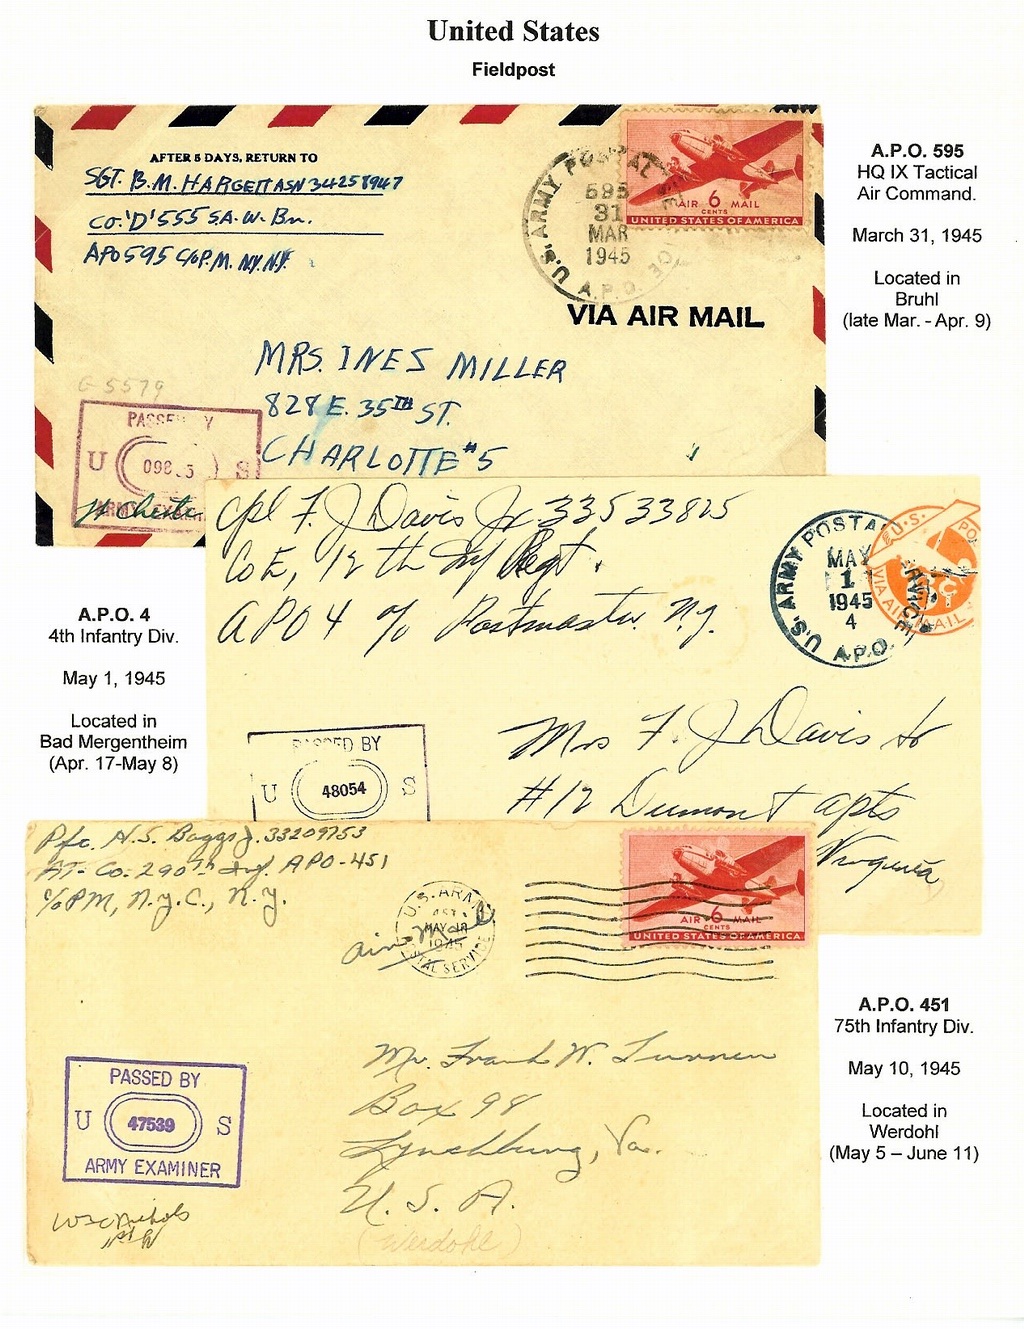 United States
Fieldpost
AFTER 5 DAYS, RETURN TO
SGT. B.M. HARGETT ASN 34258947
CO. 'D' 555 S.A.W. Bn.
APO 595 C/O P.M. N.Y. N.Y.
U.S. ARMY POSTAL
A.P.O.
595
31
MAR
1945
AIR 6 MAIL
CENTS
UNITED STATES OF AMERICA
VIA AIR MAIL
MRS. INES MILLER
828 E. 35TH ST.
CHARLOTTE #5
G-5579
PASSED BY
U S
ARMY EXAMINER
A.P.O. 595
HQ IX Tactical
Air Command.
March 31, 1945
Located in
Bruhl
(late Mar. - Apr. 9)
Cpl F. J Davis Jr 33533825
Co E, 12th Inf Regt.
APO 4 c/o Postmaster N.Y.
U.S. ARMY POSTAL SERVICE
A.P.O.
MAY
1
1945
4
U.S. PO
VIA AIR MAIL
Mrs F. J Davis Sr
#12 Dumont apts
Virginia
PASSED BY
U 48054 S
A.P.O. 4
4th Infantry Div.
May 1, 1945
Located in
Bad Mergentheim
(Apr. 17-May 8)
Pfc. H.S. Baggs Jr. 33209753
AT- Co- 290th Inf. APO-451
c/o PM, N.Y.C., N.Y.
air mail
U.S. ARMY
MAY
1945
POSTAL SERVICE
AIR 6 MAIL
CENTS
UNITED STATES OF AMERICA
Mr. Frank W.
Box 98
Lynchburg, Va.
U. S. A.
(Werdohl)
PASSED BY
U 47539 S
ARMY EXAMINER
A.P.O. 451
75th Infantry Div.
May 10, 1945
Located in
Werdohl
(May 5 – June 11)